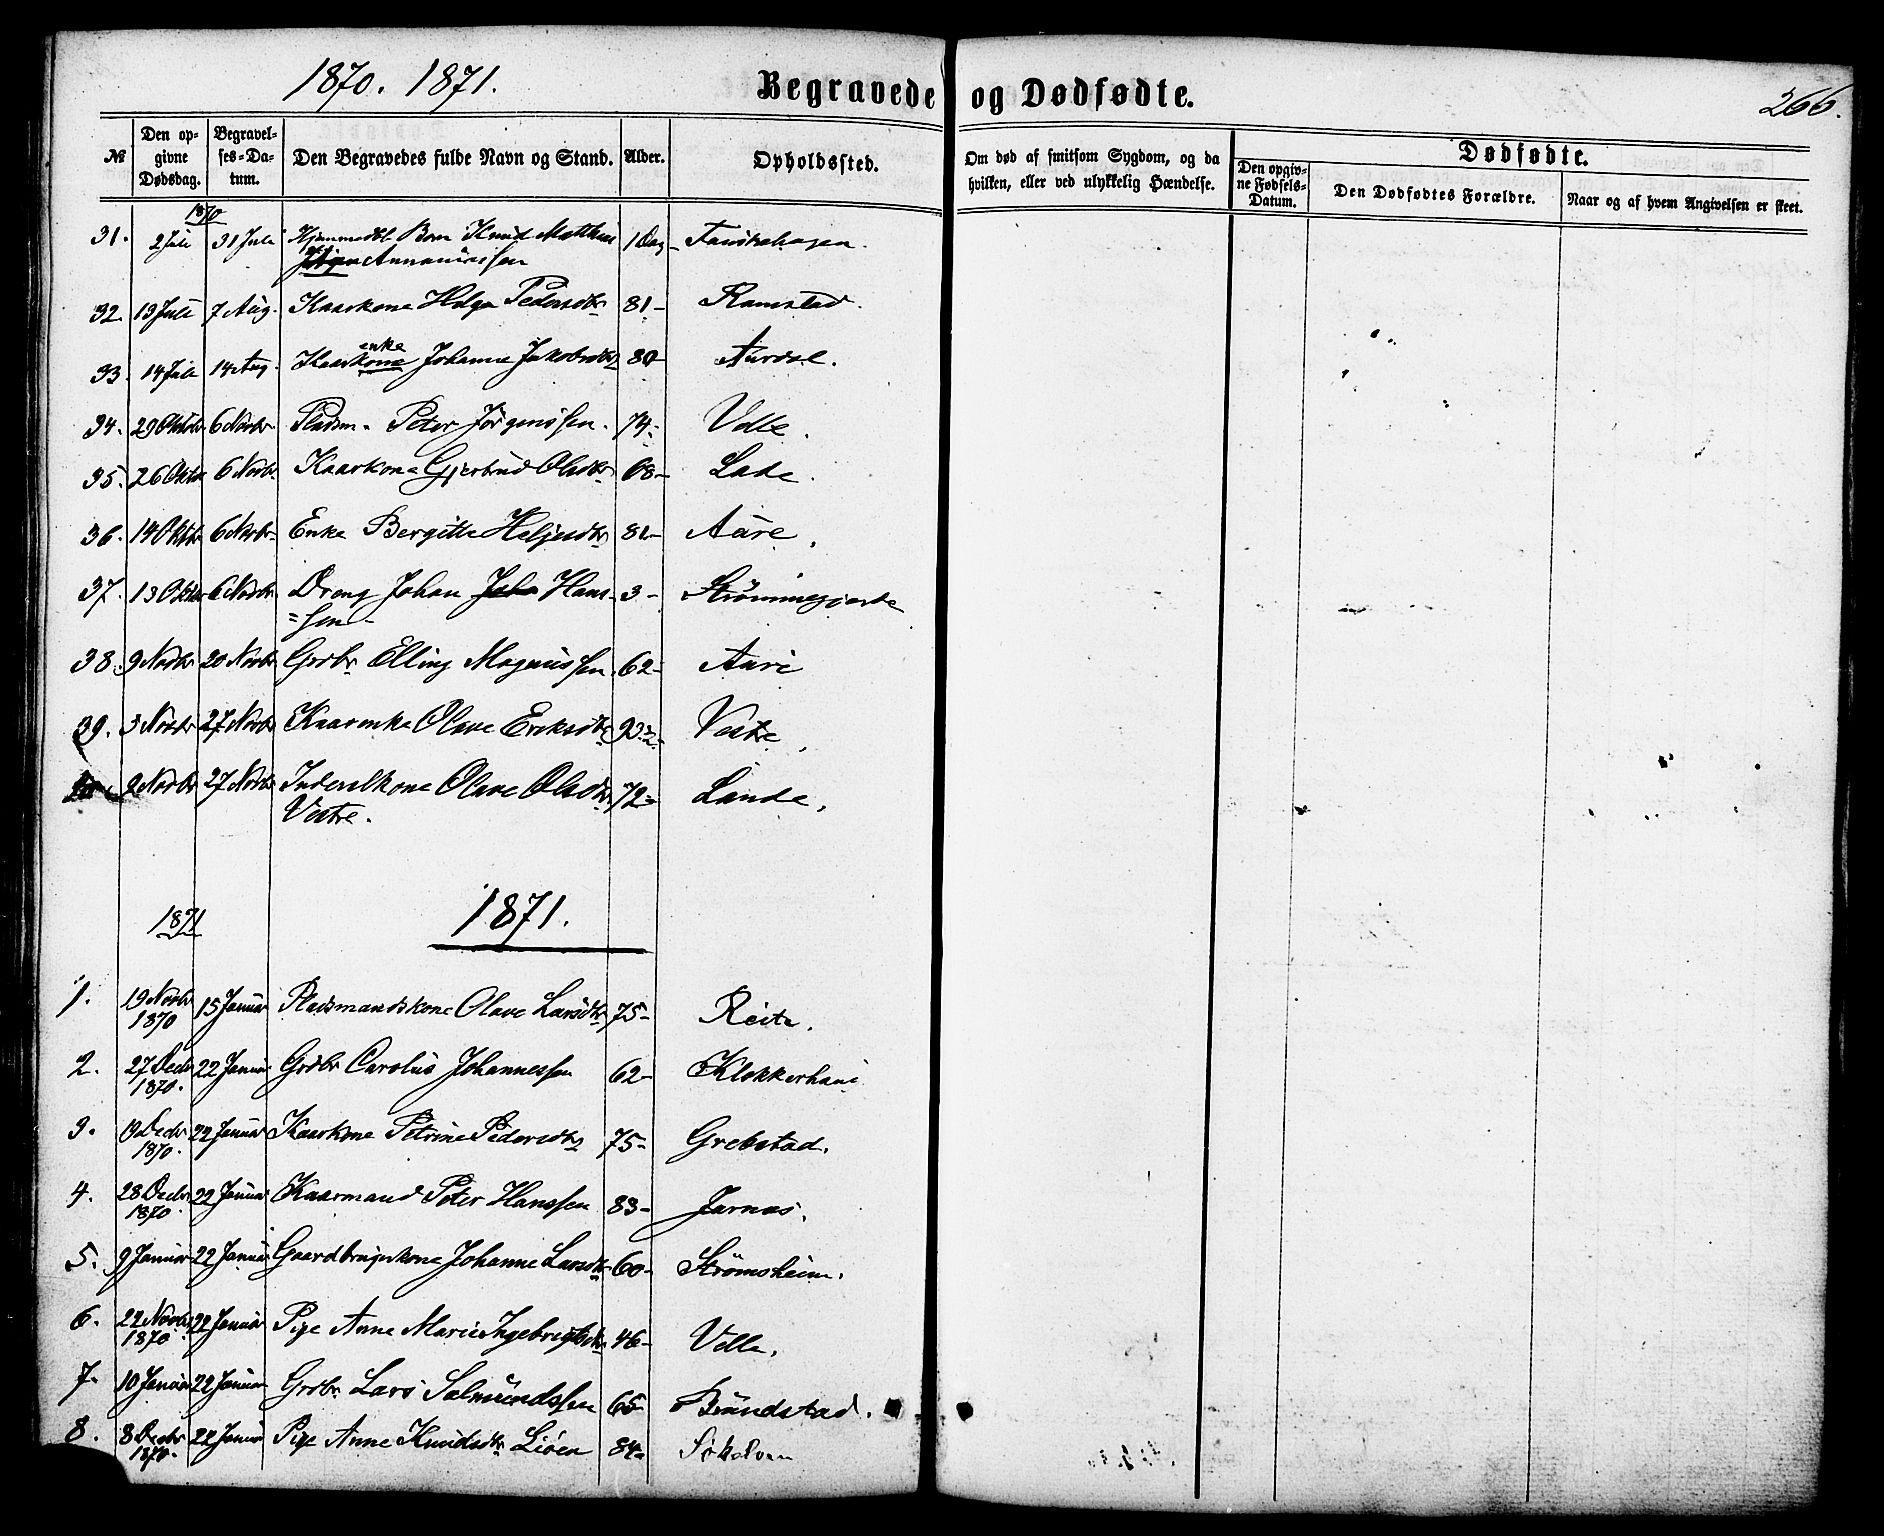 1870. 1871.
Begravede og Dødfødte.
266.
№
Den opgivne Dødsdag.
Begravelses-Datum.
Den Begravedes fulde Navn og Stand.
Alder.
Opholdssted.
Om død af smitsom Sygdom, og da hvilken, eller ved ulykkelig Hændelse.
Dødfødte.
Den opgivne Fødsels-Datum.
Den Dødfødtes Forældre.
Naar og af hvem Angivelsen er skeet.
1870
31. 2 Juli 31 Juli Hjemmedbt Barn Knud Matthias 1 Dag
32. 13 Juli 7 Aug. Kaarkone Helga Pedersdtr 81- Ramstad.
enke
33. 14 Juli 14 Aug. Kaarkone Johanne Jakobsdtr 80- Aurdal.
34. 29 Oktbr 6 Novbr Pladsm. Peter Jørgenssen. 74- Velle.
35. 26 Oktbr 6 Novbr. Kaarkone Gjertrud Olsdtr 68- Lade.
36. 14 Oktbr 6 Novbr Enke Bergitte Heljesdtr 82- Aure.
37. 13 Oktbr 6 Novbr Dreng Johan Joha Hans- 3- Strømmegjerde
=sen-
38. 9 Novbr 20 Novbr Grdbr Elling Magnussen. 62- Aure
39. 3 Novbr 27 Novbr Kaarenke Olave Eriksdtr 93½- Vestre
40. 2 Novbr 27 Novbr Inderstkone Olave Olsdtr 72- Lande.
Vestre.
1871 1871.
1. 19 Novbr 15 Januar Pladsmandskone Olave Larsdtr 75- Reite.
1870
2. 27 Decbr 22 Januar Grdbr Carolus Johannessen 62- Klokkerhaug
1870.
3. 19 Decbr 22 Januar Kaarkone Petrine Pedersdtr 75- Grebstad.
1870.
4. 28 Decbr 22 Januar Kaarmand Peter Hanssen 83- Jarnæs.
1870
5. 9 Januar 22 Januar Gaardbrugerkone Johanne Larsdtr 60- Strømsheim.
6. 22 Novbr 22 Januar Pige Anne Marie Ingebrigtsdtr 46- Velle.
1870
7. 10 Januar 22 Januar Grdbr Lars Salmundssen 65- Brundstad.
8. 8 Decbr 22 Januar Pige Anne Knudsdtr Liøen 84- Søkelven
1870.